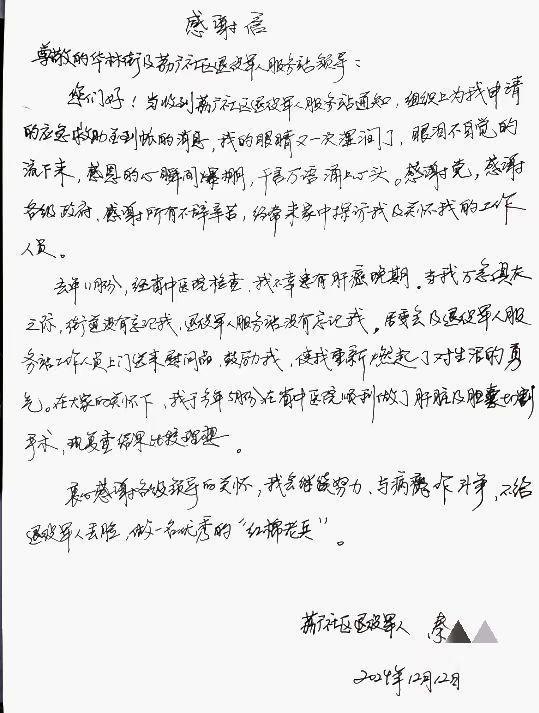 感谢信
尊敬的华林街及荔广社区退役军人服务站领导：
您们好！当收到荔广社区退役军人服务站通知，组织上为我申请
的应急救助金到帐的消息，我的眼睛又一次湿润了，眼泪不自觉的
流下来，感恩的心瞬间爆棚，千言万语涌上心头。感谢党，感谢
各级政府，感谢所有不辞辛苦，经常来家中探访我及关怀我的工作
人员。
去年11月份，经省中医院检查，我不幸患有肝癌晚期。当我万念俱灰
之际，街道没有忘记我，退役军人服务站没有忘记我。居委会及退役军人服
务站工作人员上门送来慰问品，鼓励我，使我重新燃起了对生活的勇
气。在大家的关怀下，我于今年5月份在省中医院顺利做了肝脏及胆囊切割
手术，现复查结果比较理想。
衷心感谢各级领导的关怀，我会继续努力，与病魔作斗争，不给
退役军人丢脸，做一名优秀的“红棉老兵”。
荔广社区退役军人 秦
2024年12月12日